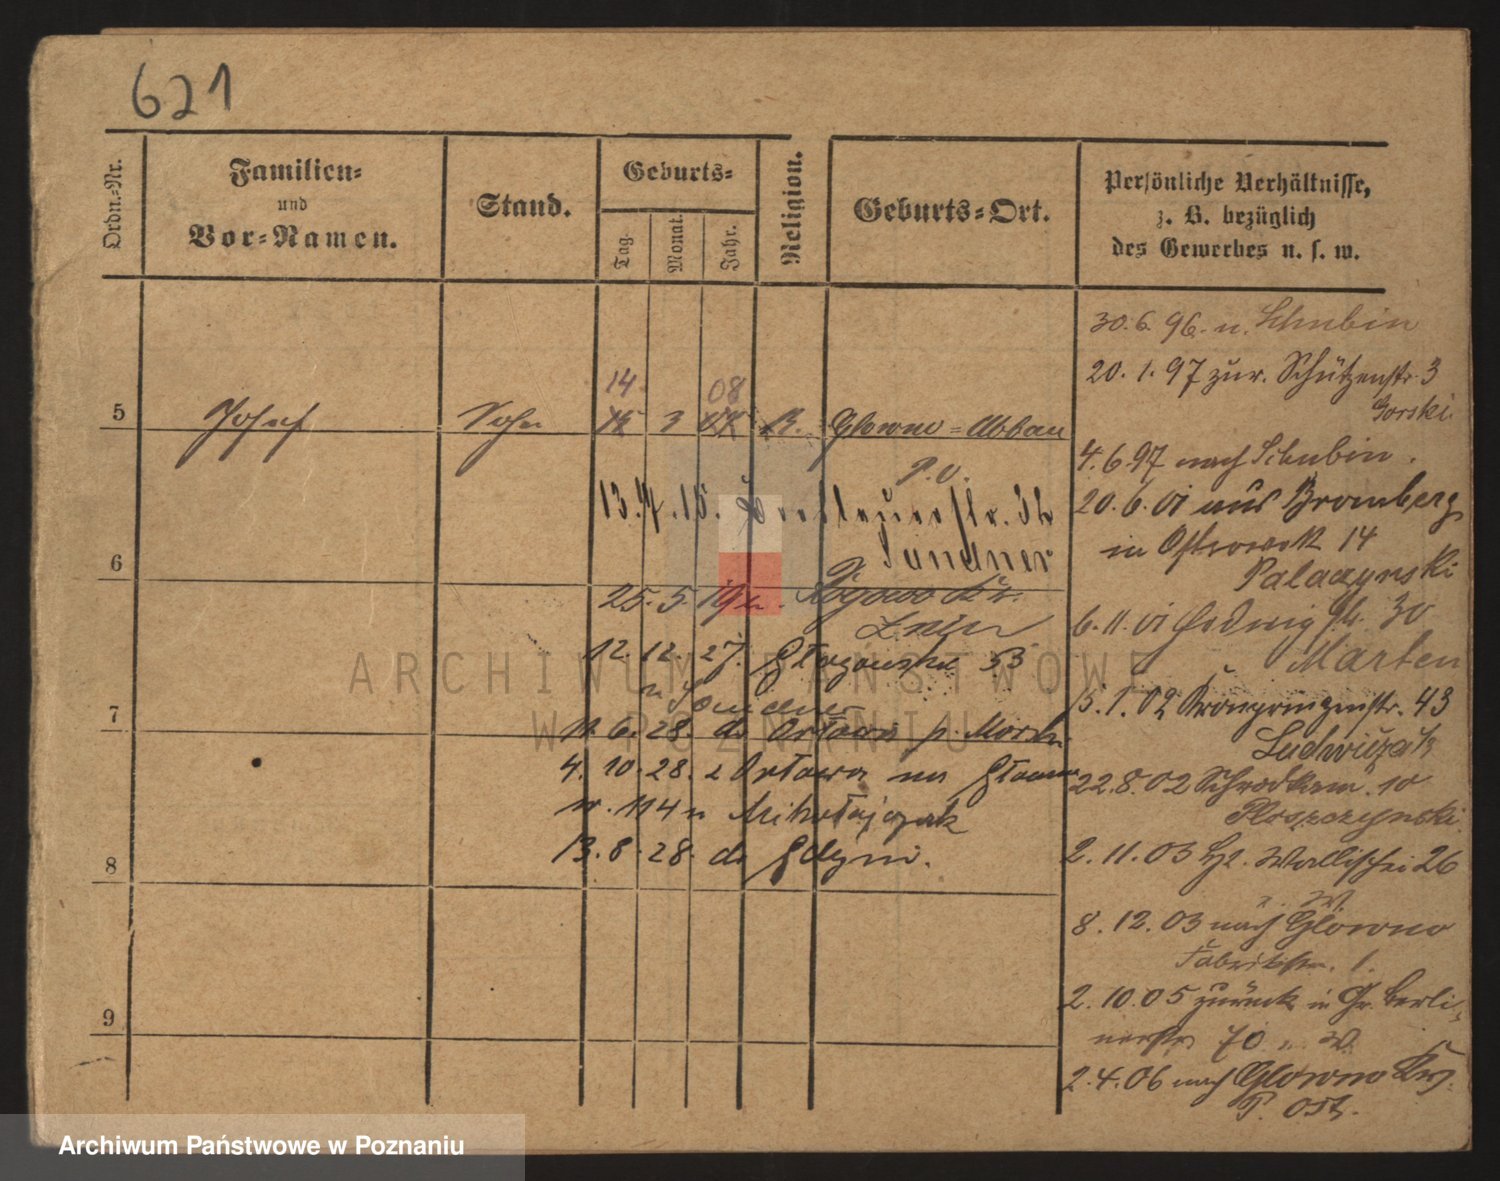 621
Ordn.-Nr.
Familien-
und
Vor-Namen.
Stand.
Geburts-
Tag.
Monat.
Jahr.
Religion.
Geburts-Ort.
Persönliche Verhältnisse,
z. B. bezüglich
des Gewerbes u. s. w.
14 08
5 Josef Sohn 3 Glowno-Abbau
P. O.
13. 4. 15.
Sandner
6
25. 5. Rogowo Kr.
Znin
12. 12. 27. Głogowska 53
u Sandner
7
11. 6. 28. do Orłowa p. Morsk.
4. 10. 28. z Orłowa na
nr. 114 u Mikołajczak
13. 8. 28. do Gdyni.
8
9
30. 6. 96. n. Schubin
20. 1. 97 zur. Schützenstr. 3
Gorski
4. 6. 97 nach Schubin.
20. 6. 01 aus Bromberg
in Ostrowek 14
Palaczynski
6. 11. 01 Hedwig 30
Marten
15. 1. 02 Kronprinzenstr. 43
Ludwiczak
22. 8. 02 Schrodkam. 10
Ploszczynski
2. 11. 03 Wallischei 26
8. 12. 03 nach Glowno
Fabrikstr. 1.
2. 10. 05 zurück in Gr. Berli-
nerstr. 70
2. 4. 06 nach Glowno Krs.
P. Ost.
ARCHIWUM PAŃSTWOWE
W POZNANIU
Archiwum Państwowe w Poznaniu